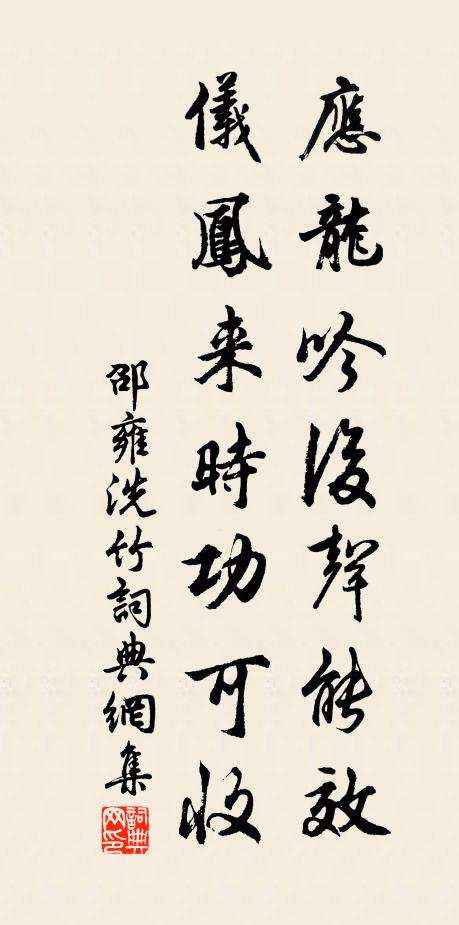 應龍吟後聲能效
儀鳳来時功可收
邵雍洗竹詞典網集
詞典网印